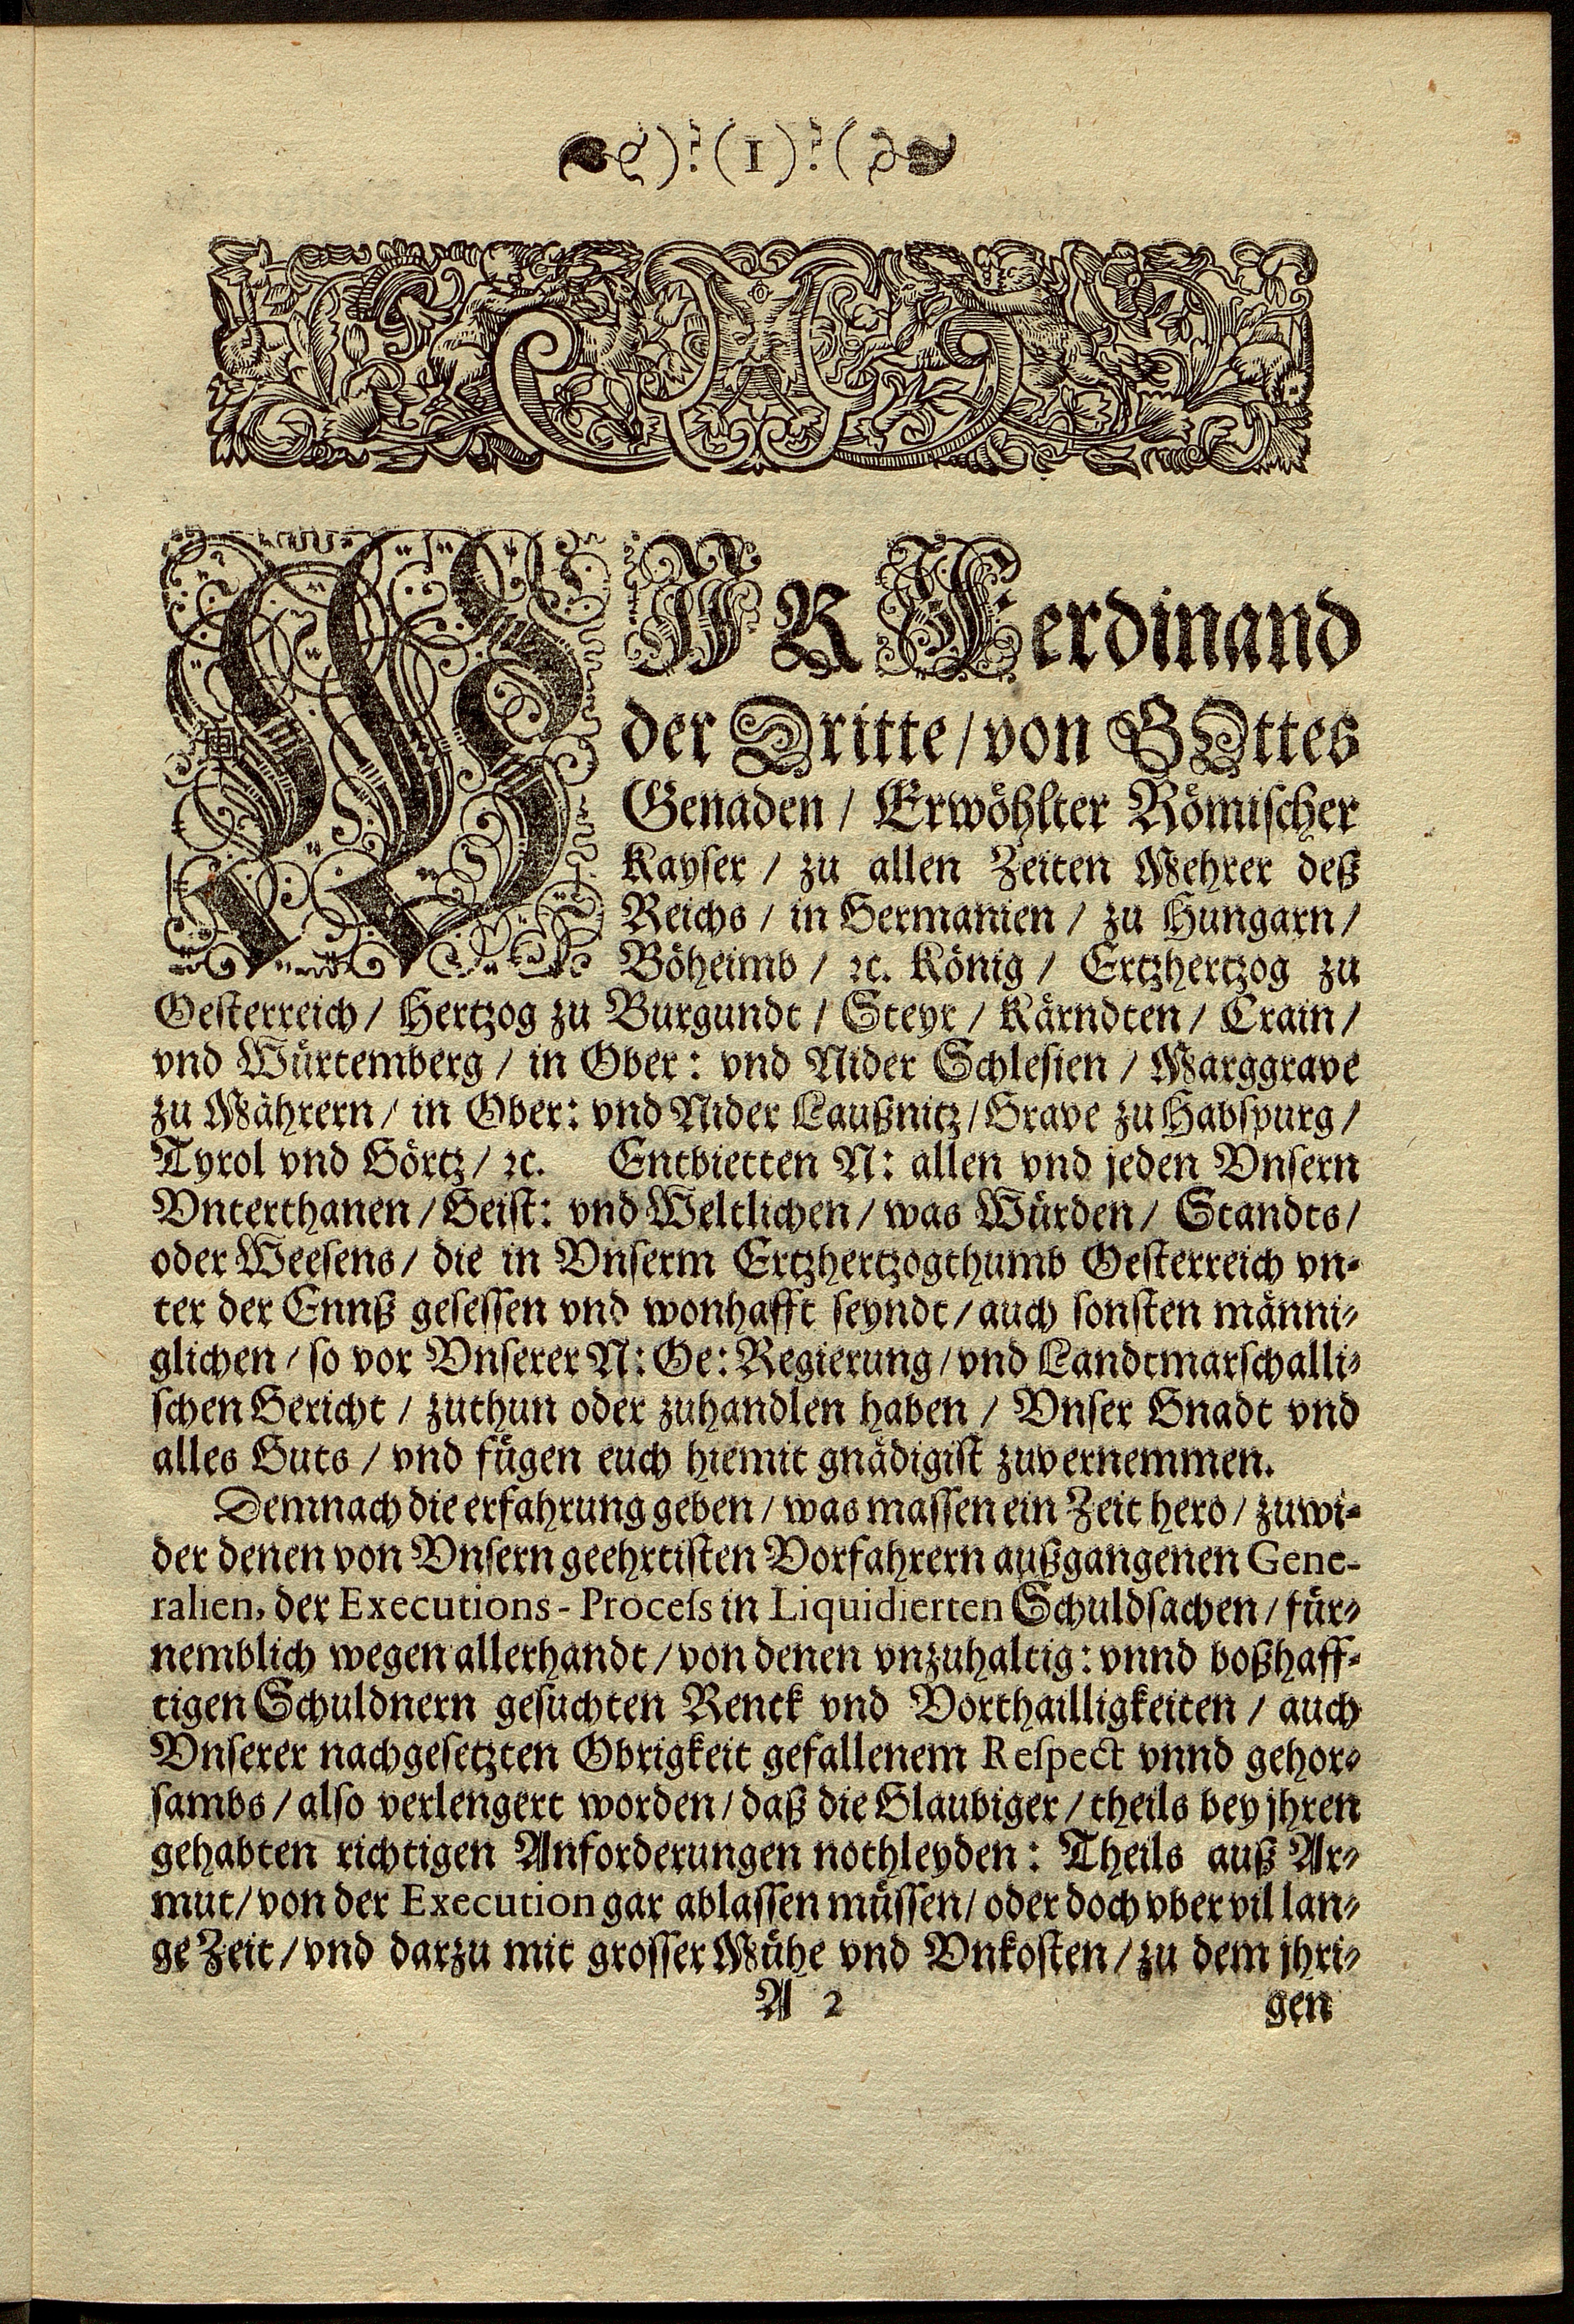 )?(1)?(
WIR Ferdinand
der Dritte/von GOttes
Genaden / Erwöhlter Römischer
Kayser / zu allen Zeiten Mehrer deß
Reichs / in Germanien / zu Hungarn /
Böheimb / ꝛc. König / Ertzhertzog zu
Oesterreich / Hertzog zu Burgundt / Steyr / Kärndten / Crain /
vnd Würtemberg / in Ober: vnd Nider Schlesien / Marggrave
zu Mährern / in Ober: vnd Nider Laußnitz / Grave zu Habspurg /
Tyrol vnd Görtz / ꝛc. Entbietten N: allen vnd jeden Vnsern
Vnterthanen / Geist: vnd Weltlichen / was Würden / Standts /
oder Weesens / die in Vnserm Ertzhertzogthumb Oesterreich vn-
ter der Ennß gesessen vnd wonhafft seyndt / auch sonsten männi-
glichen / so vor Vnserer N: Oe: Regierung / vnd Landtmarschalli-
schen Gericht / zuthun oder zuhandlen haben / Vnser Gnadt vnd
alles Guts / vnd fügen euch hiemit gnädigist zuvernemmen.
Demnach die erfahrung geben / was massen ein Zeit hero / zuwi-
der denen von Vnsern geehrtisten Vorfahrern außgangenen Gene-
ralien, der Executions-Process in Liquidierten Schuldsachen / für-
nemblich wegen allerhandt / von denen vnzuhaltig: vnnd boßhaff-
tigen Schuldnern gesuchten Renck vnd Vorthailligkeiten / auch
Vnserer nachgesetzten Obrigkeit gefallenem Respect vnnd gehor-
sambs / also verlengert worden / daß die Glaubiger / theils bey jhren
gehabten richtigen Anforderungen nothleyden: Theils auß Ar-
mut / von der Execution gar ablassen müssen / oder doch vber vil lan-
ge Zeit / vnd darzu mit grosser Mühe vnd Vnkosten / zu dem jhri-
A 2 gen